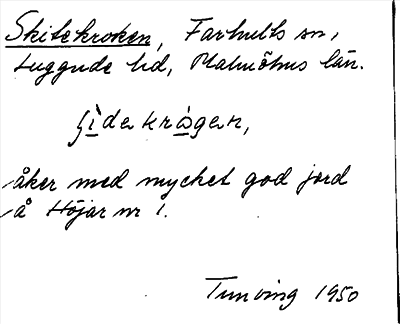 Skitekroken, Farhults sn,
Luggude hd, Malmöhus län.
åker med mycket god jord
å Höjar nr 1.
Tunving 1950